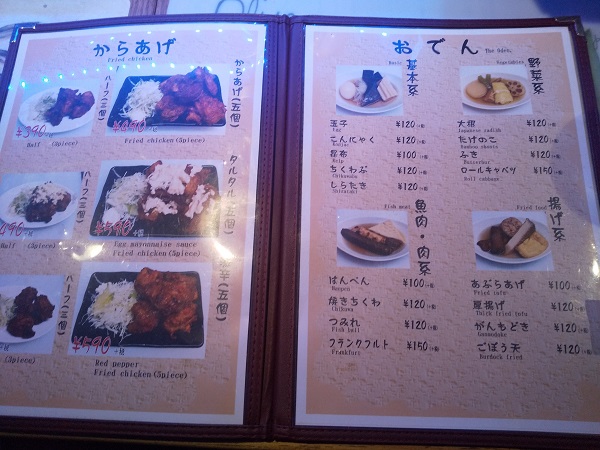 からあげ
Fried chicken
からあげ(五個)
ハーフ(三個)
¥390
Half (3piece)
Fried chicken(5piece)
タルタル(五個)
ハーフ(三個)
490
Half (3piece)
Egg mayonnaise sauce
Fried chicken(5piece)
辛(五個)
ハーフ(三個)
(3piece)
¥590
Red pepper
Fried chicken(5piece)
おでん The Oden.
基本系
玉子 ¥120
Egg
こんにゃく ¥120
昆布 ¥100
Kelp
ちくわぶ ¥120
Chikuwabu
しらたき ¥120
Shirataki
野菜系
Vegetables
大根 ¥120
Japanese radish
たけのこ ¥120
Bamboo shoots
ふき ¥120
Butterbur
ロールキャベツ ¥150
Roll cabbage
魚肉・肉系
Fish meat
はんぺん ¥100
Hanpen
焼きちくわ ¥120
Chikuwa
つみれ ¥120
Fish ball
フランクフルト ¥150
Frankfurt
揚げ系
Fried food
あぶらあげ ¥100
Fried tofu
厚揚げ ¥120
Thick fried tofu
がんもどき ¥120
Ganmodoki
ごぼう天 ¥120
Burdock fried